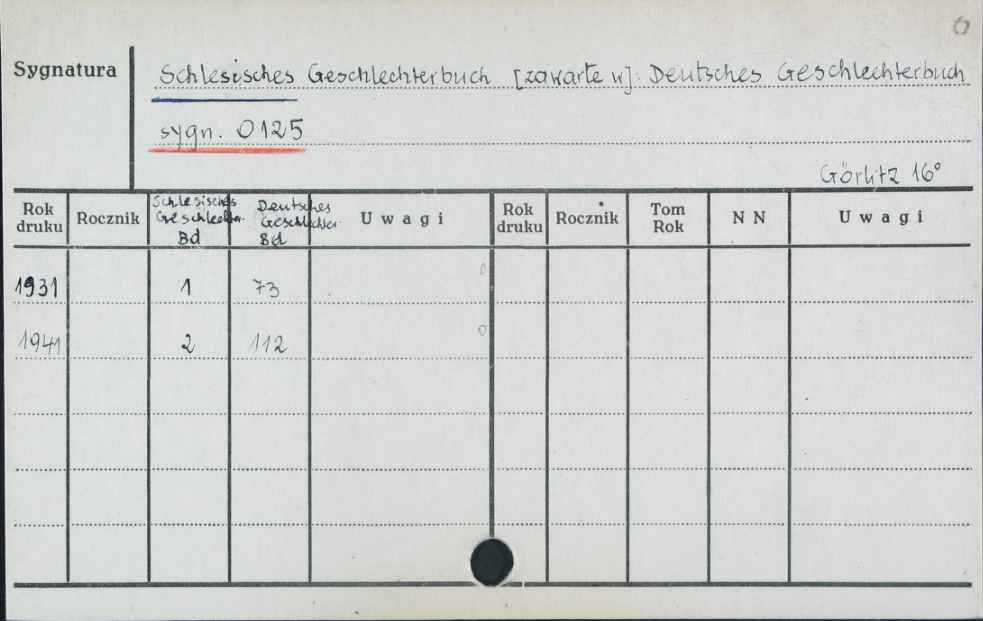 Sygnatura Schlesisches Geschlechterbuch [zawarte w]: Deutsches Geschlechterbuch
sygn. 0125
Görlitz 16°
Rok druku Rocznik Schlesisches Geschlechter. Bd Deutsches Geschlechter. Bd Uwagi Rok druku Rocznik Tom Rok NN Uwagi
1931 1 73 0
1941 2 112 0